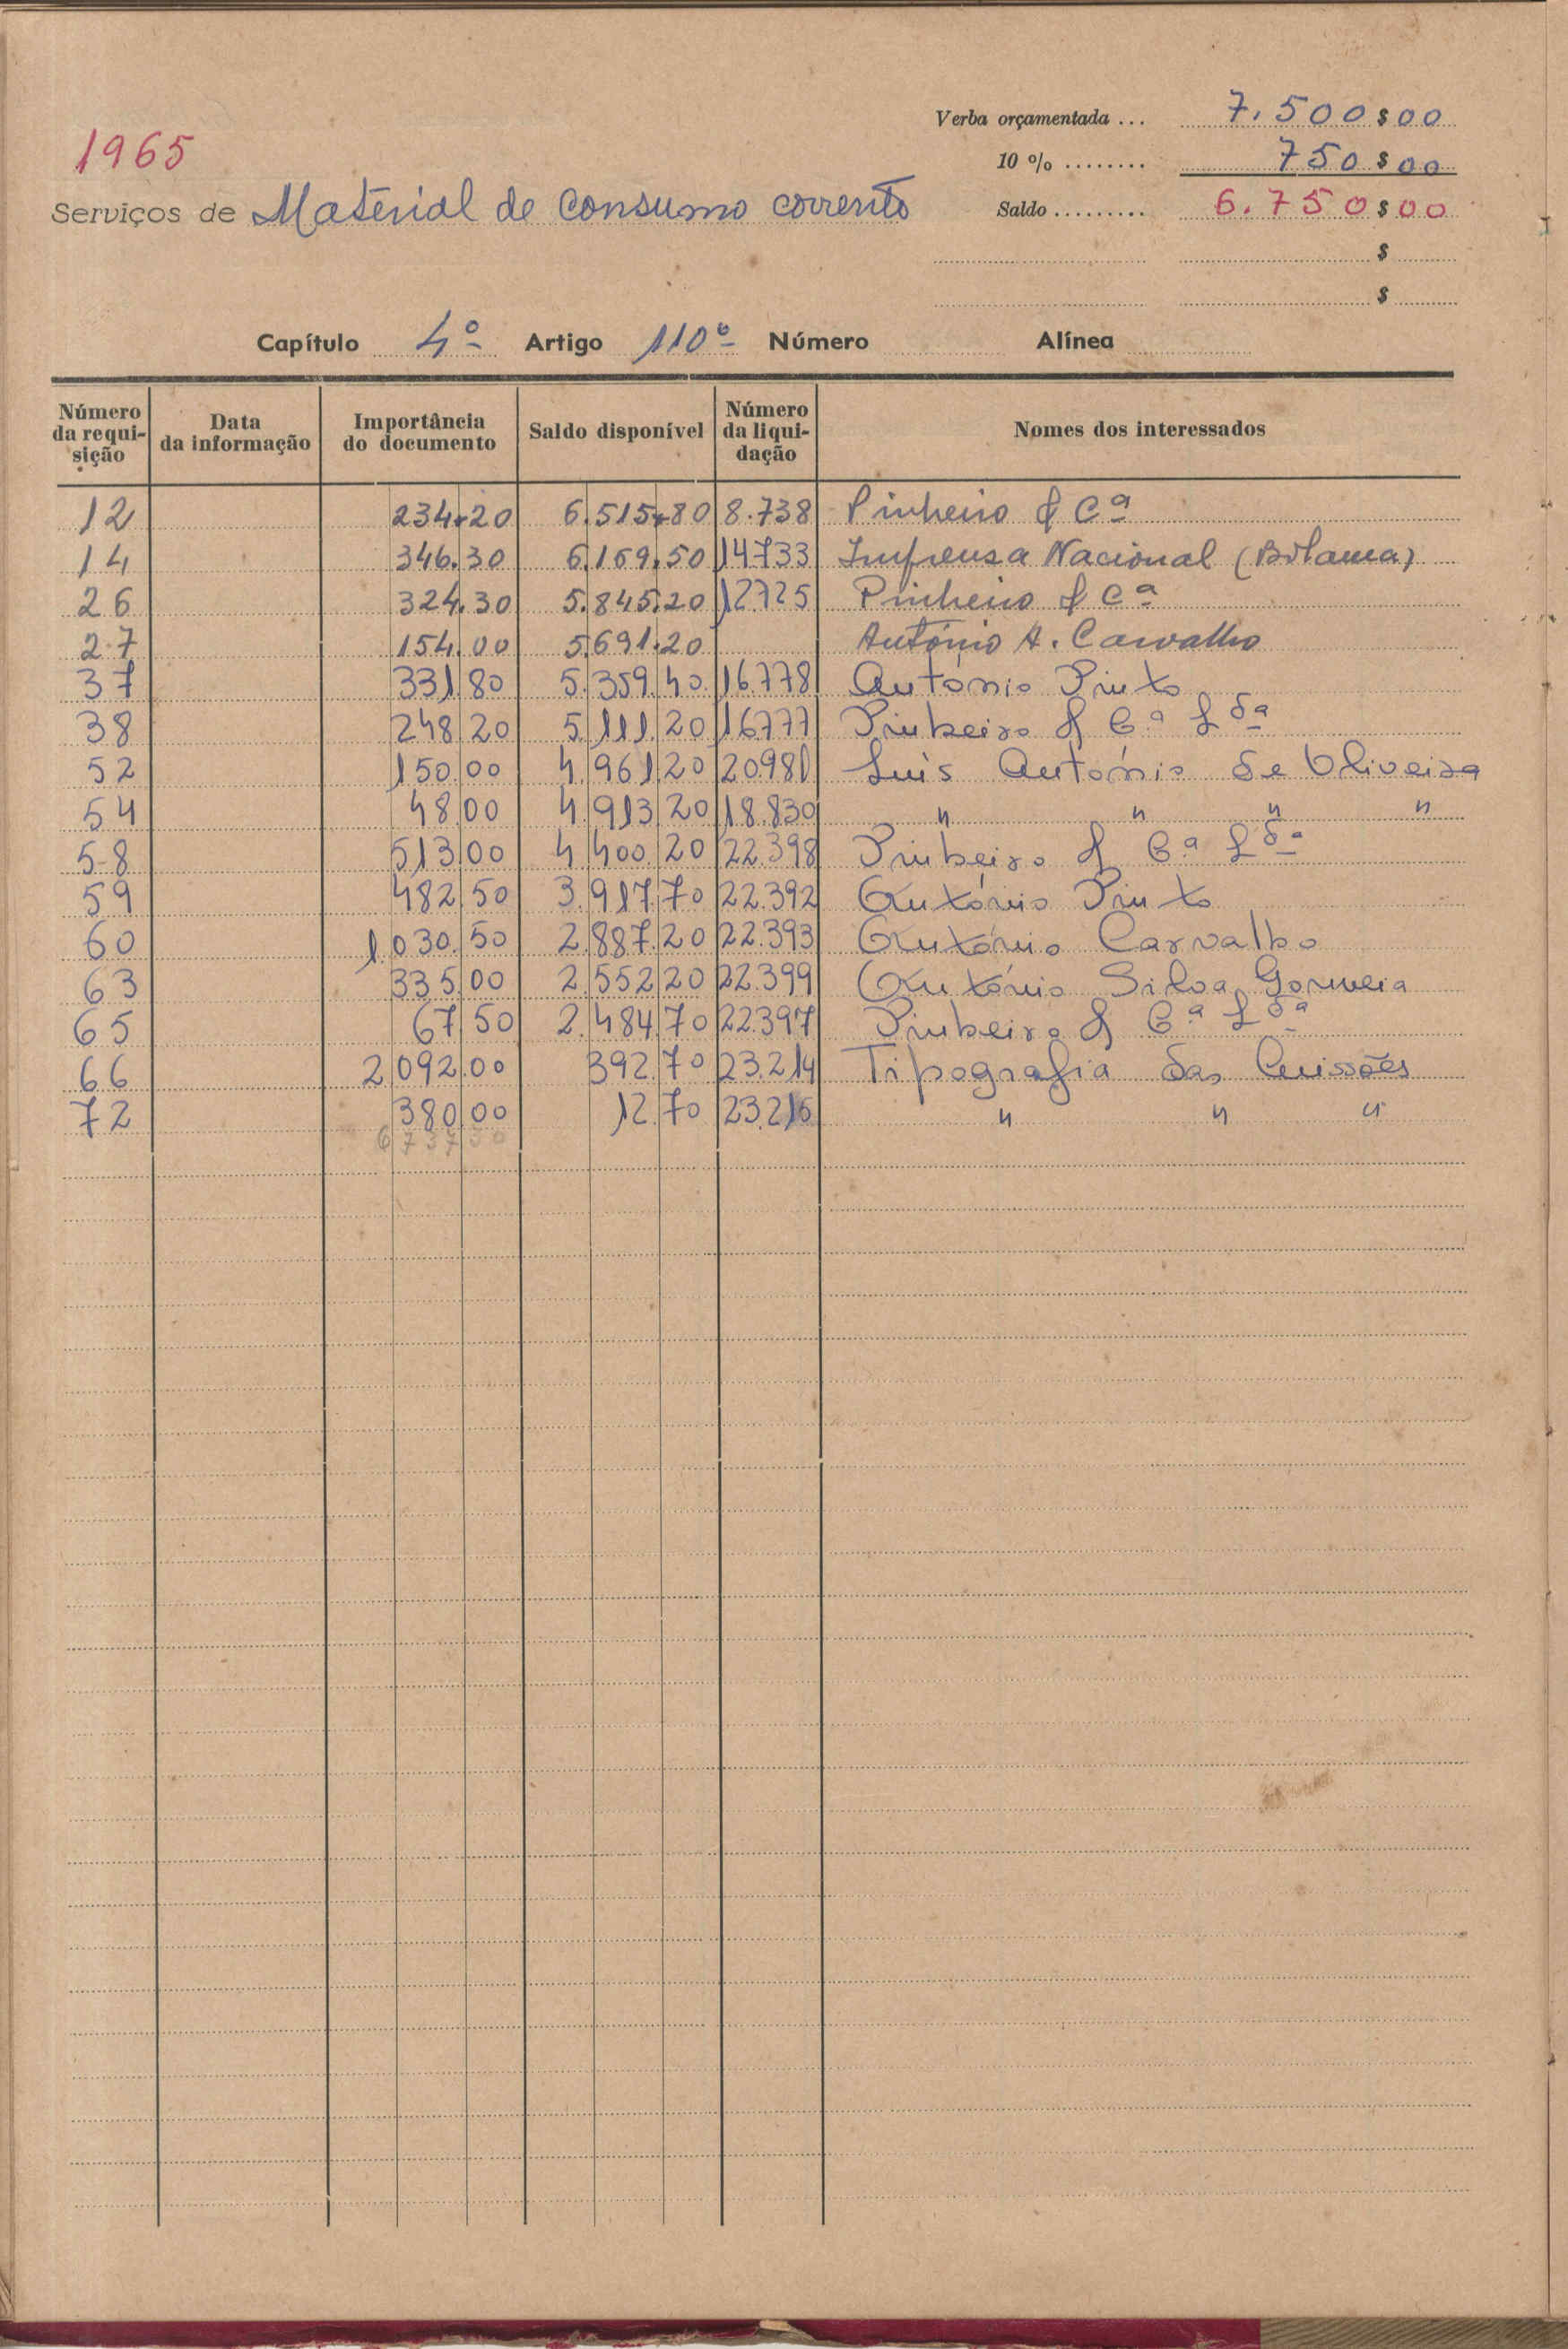 1965
Verba orçamentada ... 7.500$00
10 % ........ 750$00
Serviços de Material de consumo corrente
Saldo ......... 6.750$00
$
$
Capítulo 4º Artigo 110º Número Alínea
Número da requi-sição Data da informação Importância do documento Saldo disponível Número da liqui-dação Nomes dos interessados
12 234.20 6.515.80 8.738 Pinheiro & Cª
14 346.30 6.169.50 14733 Imprensa Nacional (Bolama)
26 324.30 5.845.20 12725 Pinheiro & Cª
27 154.00 5.691.20 António A. Carvalho
37 331.80 5.359.40 16.778 António Pinto
38 248.20 5.111.20 16.777 Pinheiro & C.ª Lda
52 150.00 4.961.20 20.981 Luís António de Oliveira
54 48.00 4.913.20 18.830 " " " "
58 513.00 4.400.20 22.398 Pinheiro & C.ª Lda
59 482.50 3.917.70 22.392 António Pinto
60 1.030.50 2.887.20 22.393 António Carvalho
63 335.00 2.552.20 22.399 António Silva Gouveia
65 67.50 2.484.70 22.397 Pinheiro & C.ª Lda
66 2.092.00 392.70 23.214 Tipografia das Missões
72 380.00 12.70 23.216 " " "
6 737 30